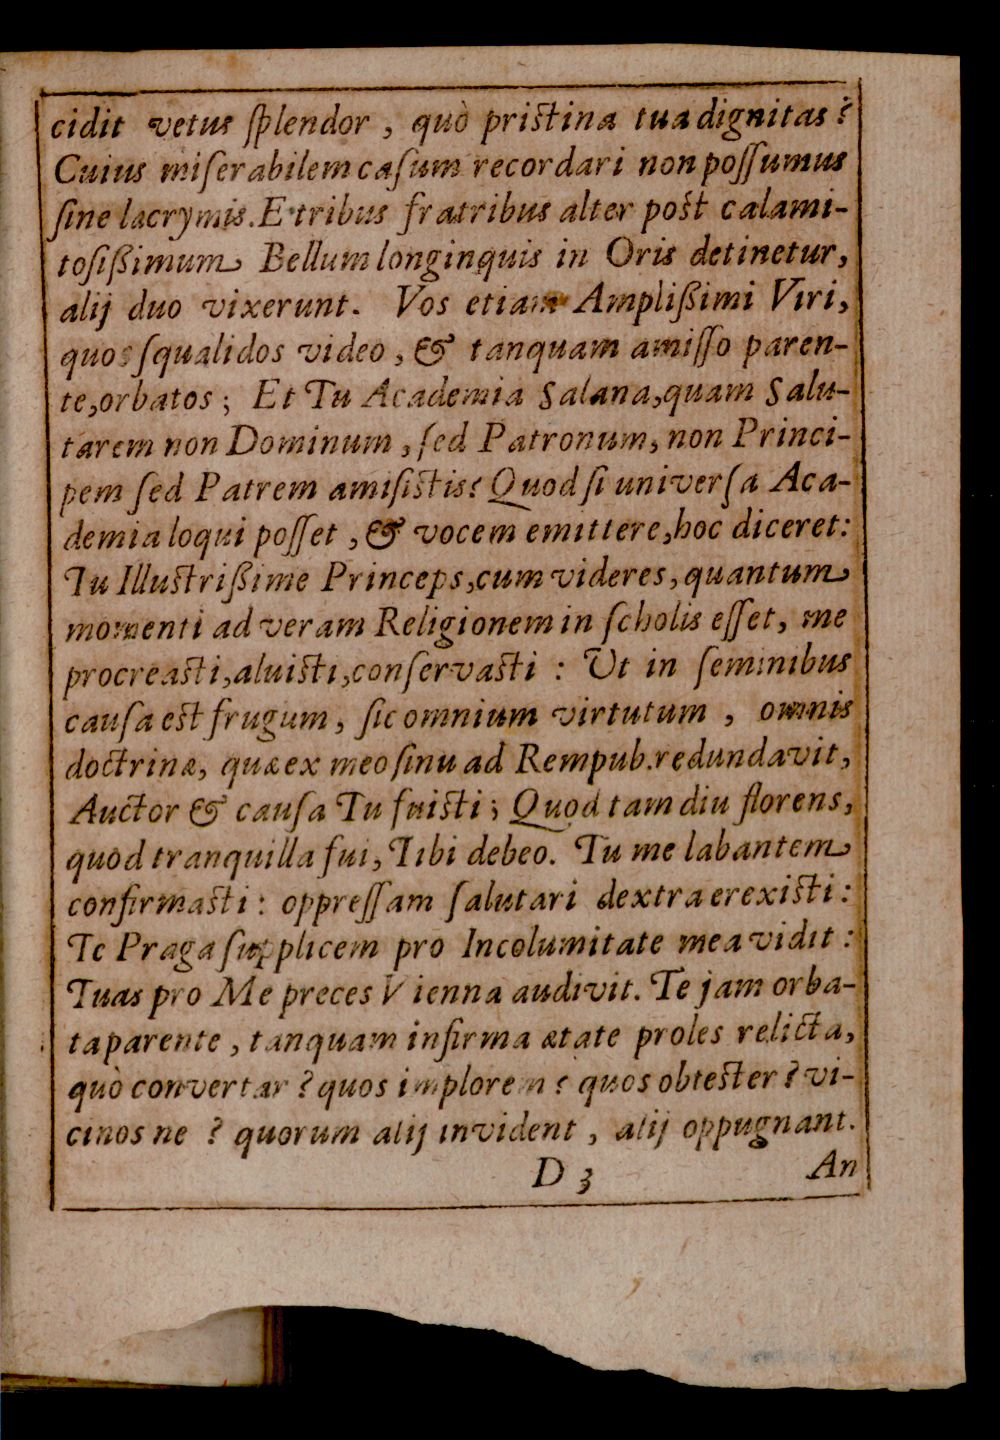 cidit vetus ſplendor, quò priſtina tua dignitas?
Cuius miſerabilem caſum recordari non poſſumus
ſine lacrymis. E tribus fratribus alter poſt calami-
toſißimum Bellum longinquis in Oris detinetur,
alij duo vixerunt. Vos etiam Amplißimi Viri,
quos ſqualidos video, & tanquam amiſſo paren-
te, orbatos; Et Tu Academia Salana, quam Salu-
tarem non Dominum, ſed Patronum, non Princi-
pem ſed Patrem amiſiſtis? Quod ſi univerſa Aca-
demia loqui poſſet, & vocem emittere, hoc diceret:
Tu Illuſtrißime Princeps, cum videres, quantum
momenti ad veram Religionem in ſcholis eſſet, me
procreaſti, aluiſti, conſervaſti: Ut in ſeminibus
cauſa eſt frugum, ſic omnium virtutum, omnis
doctrinæ, quæ ex meo ſinu ad Rempub. redundavit,
Auctor & cauſa Tu fuiſti; Quod tam diu florens,
quòd tranquilla fui, Tibi debeo. Tu me labantem
confirmaſti: oppreſſam ſalutari dextra erexiſti:
Te Praga ſupplicem pro Incolumitate mea vidit:
Tuas pro Me preces Vienna audivit. Te jam orba-
ta parente, tanquam infirma ætate proles relicta,
quò convertar? quos implorem? quos obteſter? vi-
cinos ne? quorum alij invident, alij oppugnant.
D 3 An